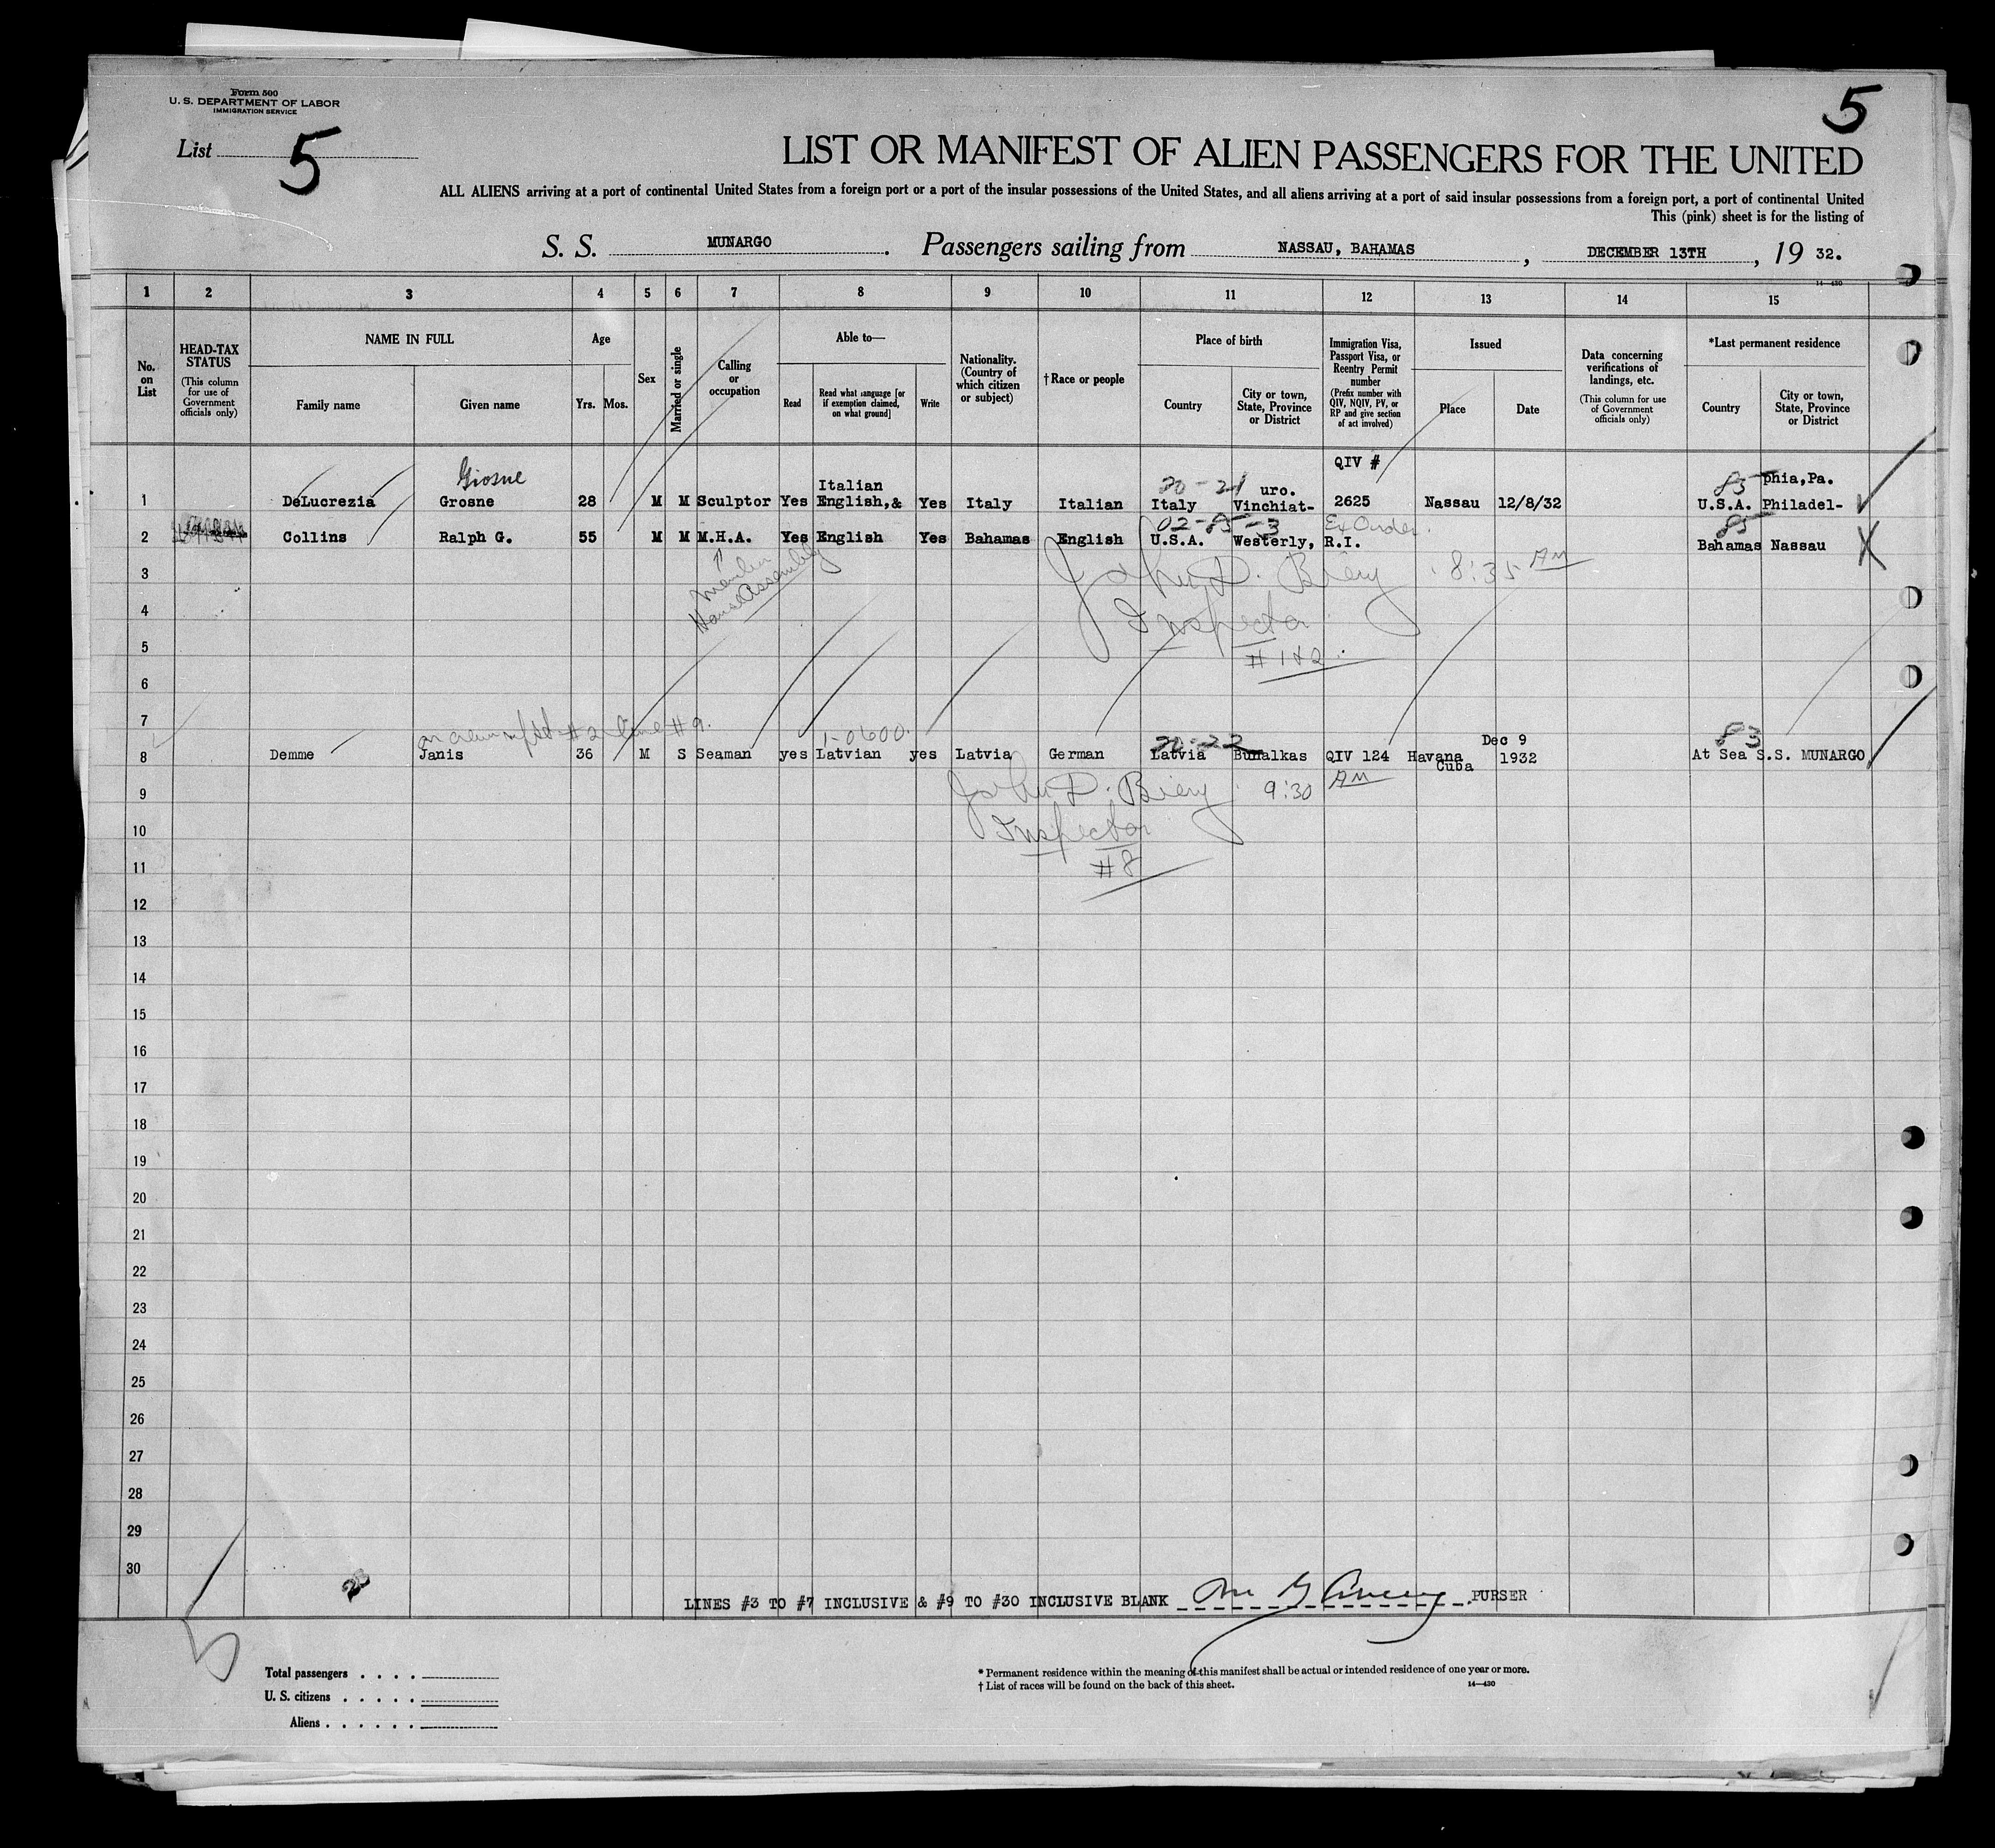 Form 500
U. S. DEPARTMENT OF LABOR
IMMIGRATION SERVICE
5
List 5
LIST OR MANIFEST OF ALIEN PASSENGERS FOR THE UNITED
ALL ALIENS arriving at a port of continental United States from a foreign port or a port of the insular possessions of the United States, and all aliens arriving at a port of said insular possessions from a foreign port, a port of continental United
This (pink) sheet is for the listing of
S. S. MUNARGO. Passengers sailing from NASSAU, BAHAMAS, DECEMBER 13TH, 19 32.
14—430
1 2 3 4 5 6 7 8 9 10 11 12 13 14 15
No. on List
HEAD-TAX STATUS
(This column for use of Government officials only)
NAME IN FULL
Family name
Given name
Age
Yrs. Mos.
Sex
Married or single
Calling or occupation
Able to—
Read
Read what language [or if exemption claimed, on what ground]
Write
Nationality. (Country of which citizen or subject)
† Race or people
Place of birth
Country
City or town, State, Province or District
Immigration Visa, Passport Visa, or Reentry Permit number
(Prefix number with QIV, NQIV, PV, or RP and give section of act involved)
Issued
Place
Date
Data concerning verifications of landings, etc.
(This column for use of Government officials only)
*Last permanent residence
Country
City or town, State, Province or District
Giosne Italian 20-21 uro. QIV # 85 phia, Pa.
1 DeLucrezia Grosne 28 M M Sculptor Yes English,& Yes Italy Italian Italy Vinchiat- 2625 Nassau 12/8/32 U.S.A. Philadel-
02-85-3 Ex Order. 85
2 Collins Ralph G. 55 M M M.H.A. Yes English Yes Bahamas English U.S.A. Westerly, R.I. Bahamas Nassau X
3 ↑ Member House Assembly John D. Biery 8:35 AM
4 Inspector
5 #1&2.
6
7 on crew #2 line #9. 1-0600. 20-22 Dec 9 83
8 Demme Janis 36 M S Seaman yes Latvian yes Latvia German Latvia Bunalkas QIV 124 Havana Cuba 1932 At Sea S.S. MUNARGO
9 John D. Biery 9:30 AM
10 Inspector
11 #8
12
13
14
15
16
17
18
19
20
21
22
23
24
25
26
27
28
29
30
LINES #3 TO #7 INCLUSIVE & #9 TO #30 INCLUSIVE BLANK PURSER
Total passengers . . . .
U. S. citizens . . . . .
Aliens . . . . . .
* Permanent residence within the meaning of this manifest shall be actual or intended residence of one year or more.
† List of races will be found on the back of this sheet.
14—430